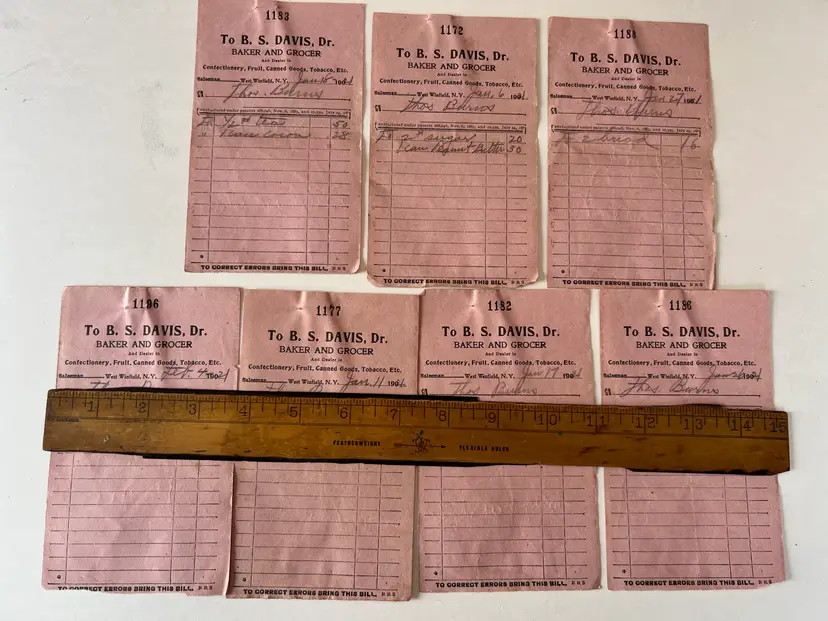 1183
To B. S. DAVIS, Dr.
BAKER AND GROCER
And Dealer in
Confectionery, Fruit, Canned Goods, Tobacco, Etc.
Salesman West Winfield, N.Y. Jan 18 1921
M Thos. Burns
½ # tea 50
1 can cocoa 28
TO CORRECT ERRORS BRING THIS BILL.
1172
To B. S. DAVIS, Dr.
BAKER AND GROCER
And Dealer in
Confectionery, Fruit, Canned Goods, Tobacco, Etc.
Salesman West Winfield, N.Y. Jan. 6 1921
M Thos Burns
2 # sugar 20
1 can Peanut Butter 30
TO CORRECT ERRORS BRING THIS BILL.
1188
To B. S. DAVIS, Dr.
BAKER AND GROCER
And Dealer in
Confectionery, Fruit, Canned Goods, Tobacco, Etc.
Salesman West Winfield, N.Y. Jan 27
M Thos. Burns
2 bread 16
TO CORRECT ERRORS BRING THIS BILL.
1196
To B. S. DAVIS, Dr.
BAKER AND GROCER
And Dealer in
Confectionery, Fruit, Canned Goods, Tobacco, Etc.
Salesman West Winfield, N.Y. Feb. 4 1921
1177
To B. S. DAVIS, Dr.
BAKER AND GROCER
And Dealer in
Confectionery, Fruit, Canned Goods, Tobacco, Etc.
Salesman West Winfield, N.Y. Jan. 11 1921
1182
To B. S. DAVIS, Dr.
BAKER AND GROCER
And Dealer in
Confectionery, Fruit, Canned Goods, Tobacco, Etc.
Salesman West Winfield, N.Y. Jan 17 1921
M Thos Burns
1186
To B. S. DAVIS, Dr.
BAKER AND GROCER
And Dealer in
Confectionery, Fruit, Canned Goods, Tobacco, Etc.
Salesman West Winfield, N.Y. Jan
M Thos. Burns
1 2 3 4 5 6 7 8 9 10 11 12 13 14 15
FEATHERWEIGHT FLEXIBLE RULER
TO CORRECT ERRORS BRING THIS BILL.
TO CORRECT ERRORS BRING THIS BILL.
TO CORRECT ERRORS BRING THIS BILL.
TO CORRECT ERRORS BRING THIS BILL.